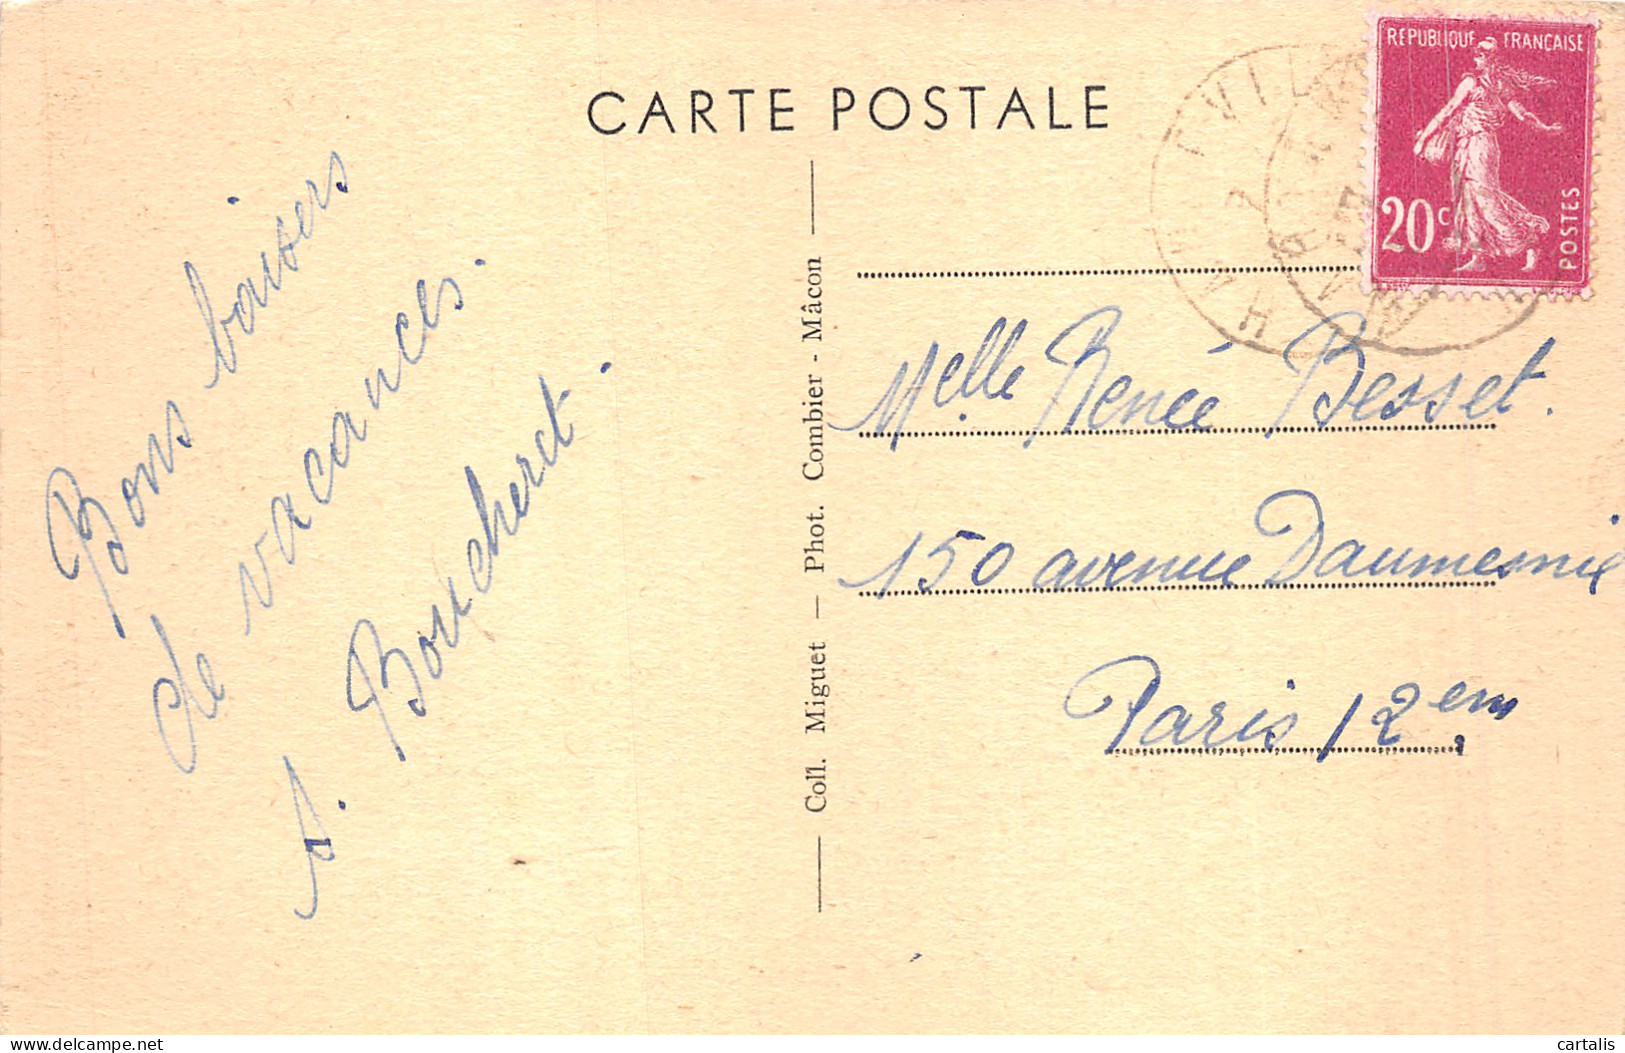 CARTE POSTALE
REPUBLIQUE FRANÇAISE
20c
POSTES
Bons baisers
de vacances.
s. Boucheret.
Coll. Miguet — Phot. Combier - Mâcon
Melle Renée Besset.
150 avenue Daumesnil
Paris 12em
delcampe.net
cartalis